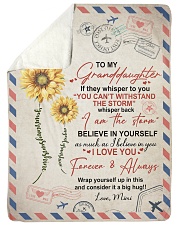 TO MY
Granddaughter
If they whisper to you
"YOU CAN'T WITHSTAND
THE STORM"
whisper back
I am the storm
BELIEVE IN YOURSELF
as much as I believe in you
I LOVE YOU
Forever & Always
Wrap yourself up in this
and consider it a big hug!!
Love, Mimi